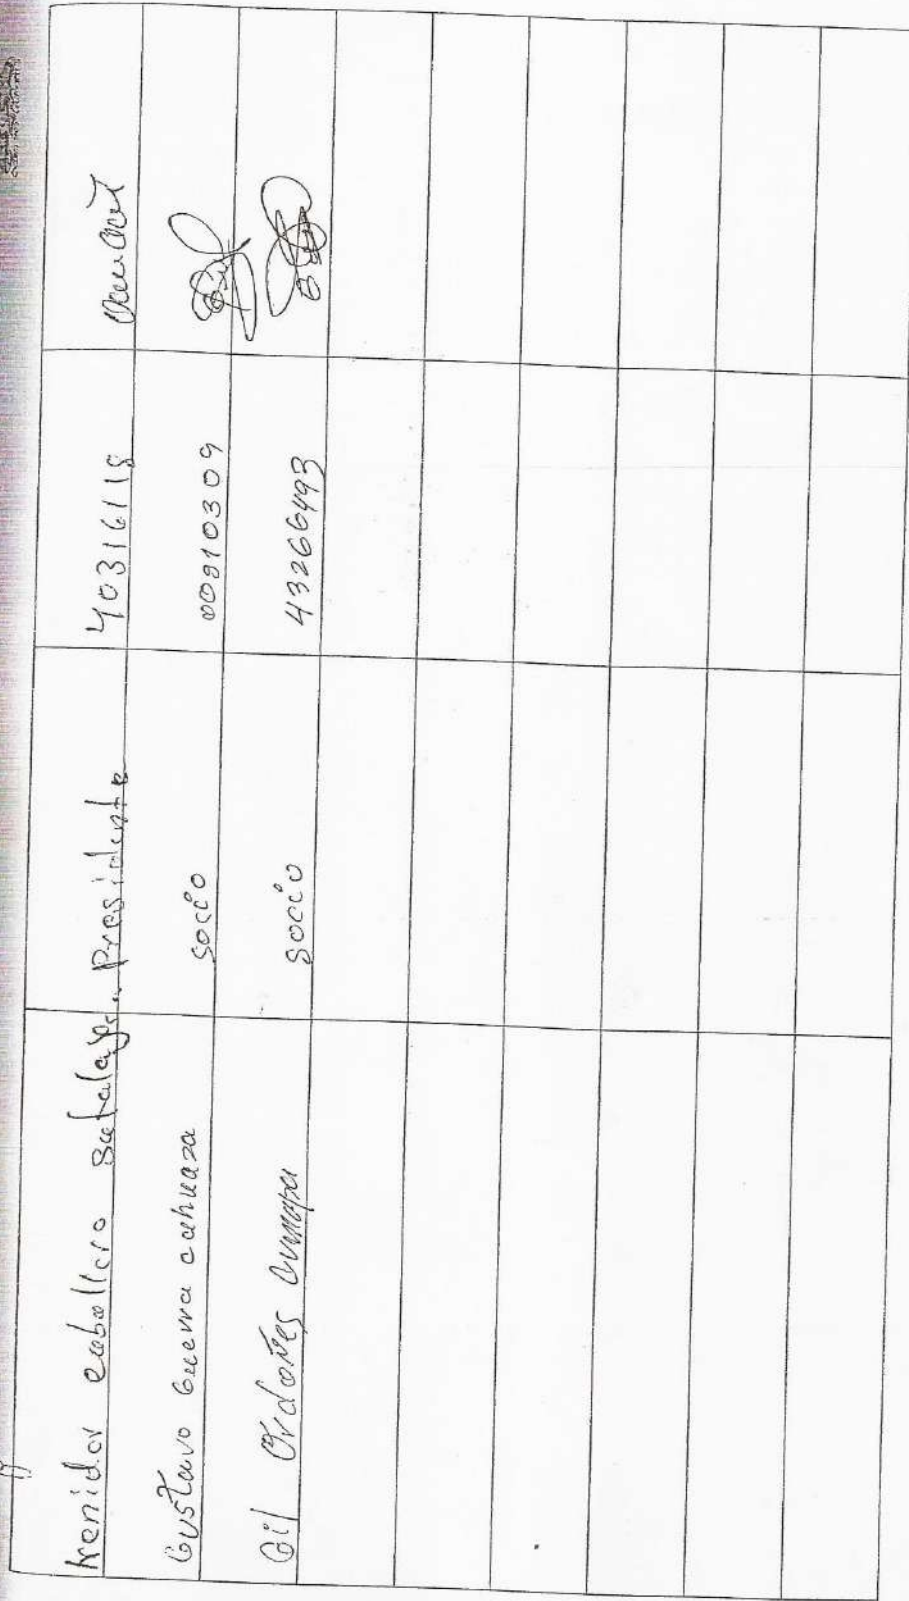 Kenidor caballero Satalaya Presidente 40316118
Gustavo Guerra cahuaza socio 00910309
Gil Ordoñes socio 43266493